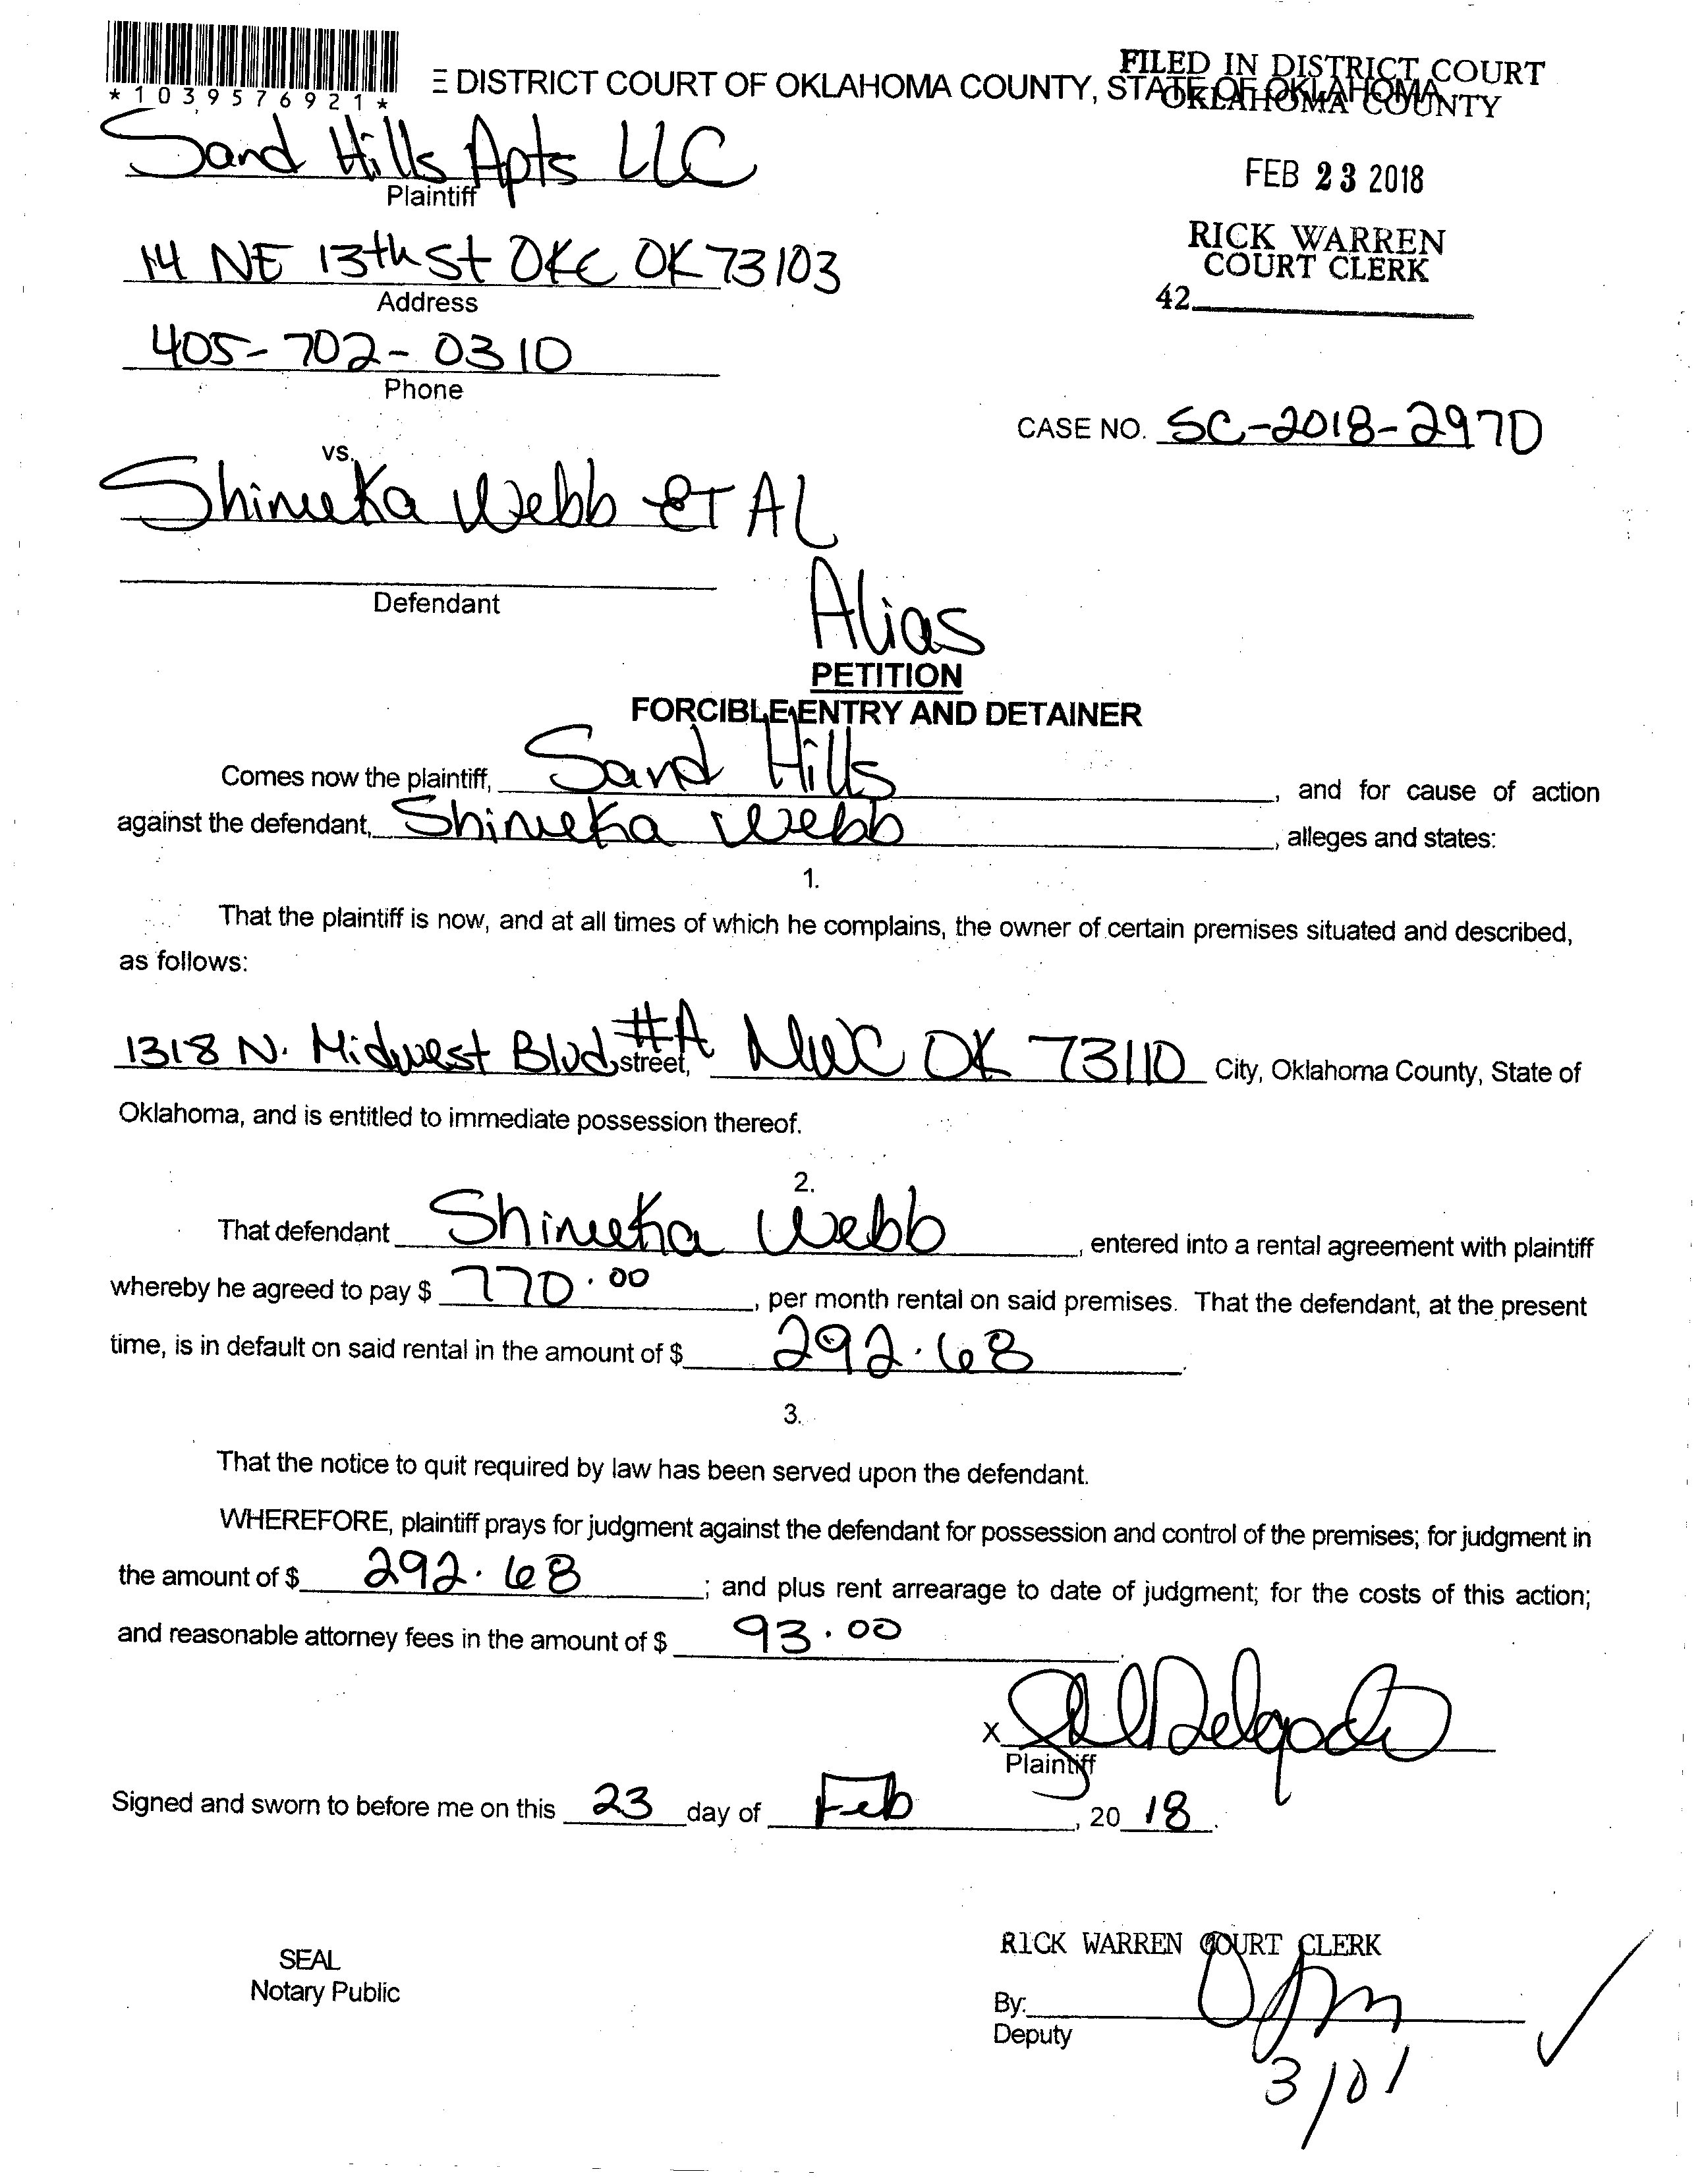 *1039576921*
E DISTRICT COURT OF OKLAHOMA COUNTY, STATE OF OKLAHOMA
FILED IN DISTRICT COURT
OKLAHOMA COUNTY
Sand Hills Apts LLC
Plaintiff
FEB 23 2018
14 NE 13th St OKC OK 73103
Address
RICK WARREN
COURT CLERK
42
405-702-0310
Phone
CASE NO. SC-2018-2970
vs.
Shimeka Webb ET AL
Defendant
Alias
PETITION
FORCIBLE ENTRY AND DETAINER
Comes now the plaintiff, Sand Hills, and for cause of action
against the defendant, Shimeka Webb, alleges and states:
1.
That the plaintiff is now, and at all times of which he complains, the owner of certain premises situated and described,
as follows:
1318 N. Midwest Blvd #A street, MWC OK 73110 City, Oklahoma County, State of
Oklahoma, and is entitled to immediate possession thereof.
2.
That defendant Shimeka Webb, entered into a rental agreement with plaintiff
whereby he agreed to pay $ 770.00, per month rental on said premises. That the defendant, at the present
time, is in default on said rental in the amount of $ 292.68.
3.
That the notice to quit required by law has been served upon the defendant.
WHEREFORE, plaintiff prays for judgment against the defendant for possession and control of the premises; for judgment in
the amount of $ 292.68; and plus rent arrearage to date of judgment; for the costs of this action;
and reasonable attorney fees in the amount of $ 93.00.
X Delgado
Plaintiff
Signed and sworn to before me on this 23 day of Feb, 20 18.
SEAL
Notary Public
RICK WARREN COURT CLERK
By:
Deputy
3/01